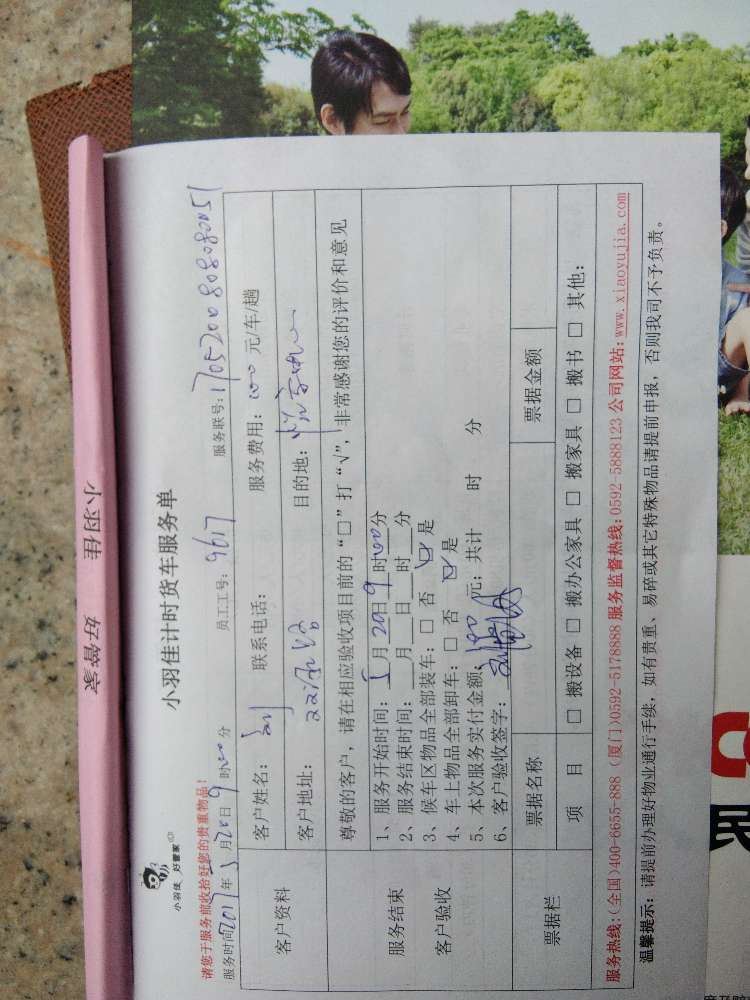 小羽佳 好管家
小羽佳 好管家
小羽佳计时货车服务单
请您于服务前收拾好您的贵重物品!
服务时间2017年5月20日9时00分 员工工号: 9617 服务联号: 170520080808051
客户资料
客户姓名: 联系电话: 服务费用: 元/车/趟
客户地址: 目的地:
服务结束 客户验收
尊敬的客户, 请在相应验收项目前的“□”打“√”, 非常感谢您的评价和意见
1、服务开始时间: 5月20日9时00分
2、服务结束时间: 月 日 时 分
3、候车区物品全部装车: □ 否 ☑ 是
4、车上物品全部卸车: □ 否 ☑ 是
5、本次服务实付金额: 元; 共计 时 分
6、客户验收签字:
票据栏
票据名称 票据金额
项 目 □ 搬设备 □ 搬办公家具 □ 搬家具 □ 搬书 □ 其他:
服务热线:(全国)400-6655-888 (厦门)0592-5178888 服务监督热线: 0592-5888123 公司网站: www.xiaoyujia.com
温馨提示: 请提前办理好物业通行手续, 如有贵重、易碎或其它特殊物品请提前申报, 否则我司不予负责。
民